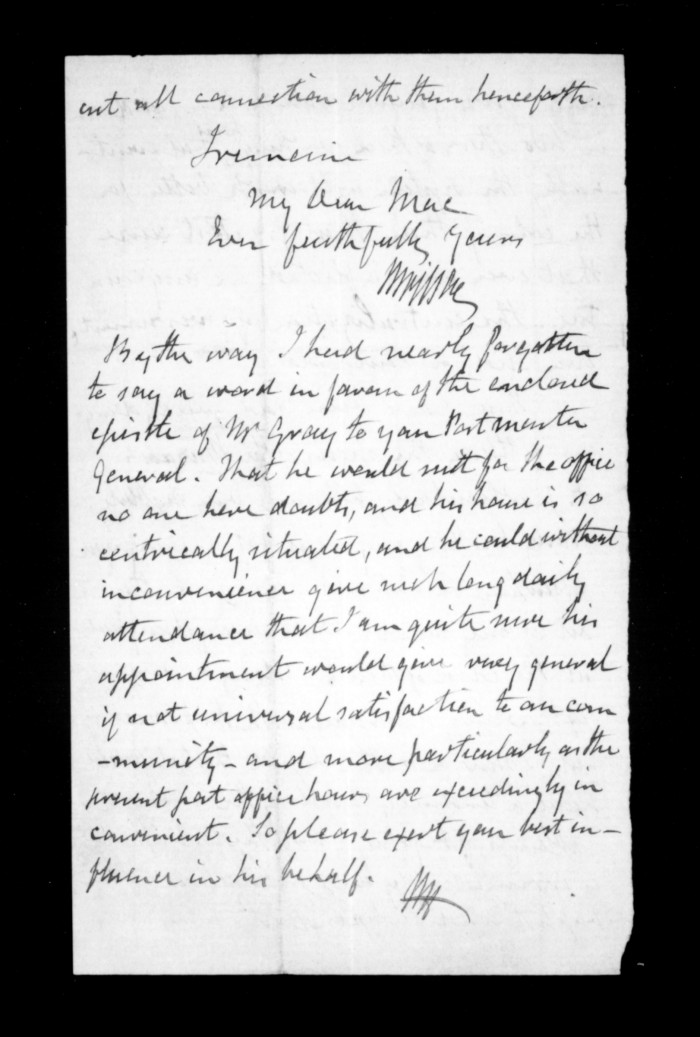 cut all connection with them henceforth.
I remain
My Dear Mac
Ever faithfully Yours
By the way I had nearly forgotten
to say a word in favour of the enclosed
epistle of Mr Gray to your Post master
General. That he would suit for the office
no one have doubts, and his house is so
centrically situated, and he could without
inconvenience give such long daily
attendance that I am quite sure his
appointment would give very general
if not universal satisfaction to our com
-munity - and more particularly as the
present post office hours are exceedingly in
convenient. So please exert your best in-
fluence in his behalf.